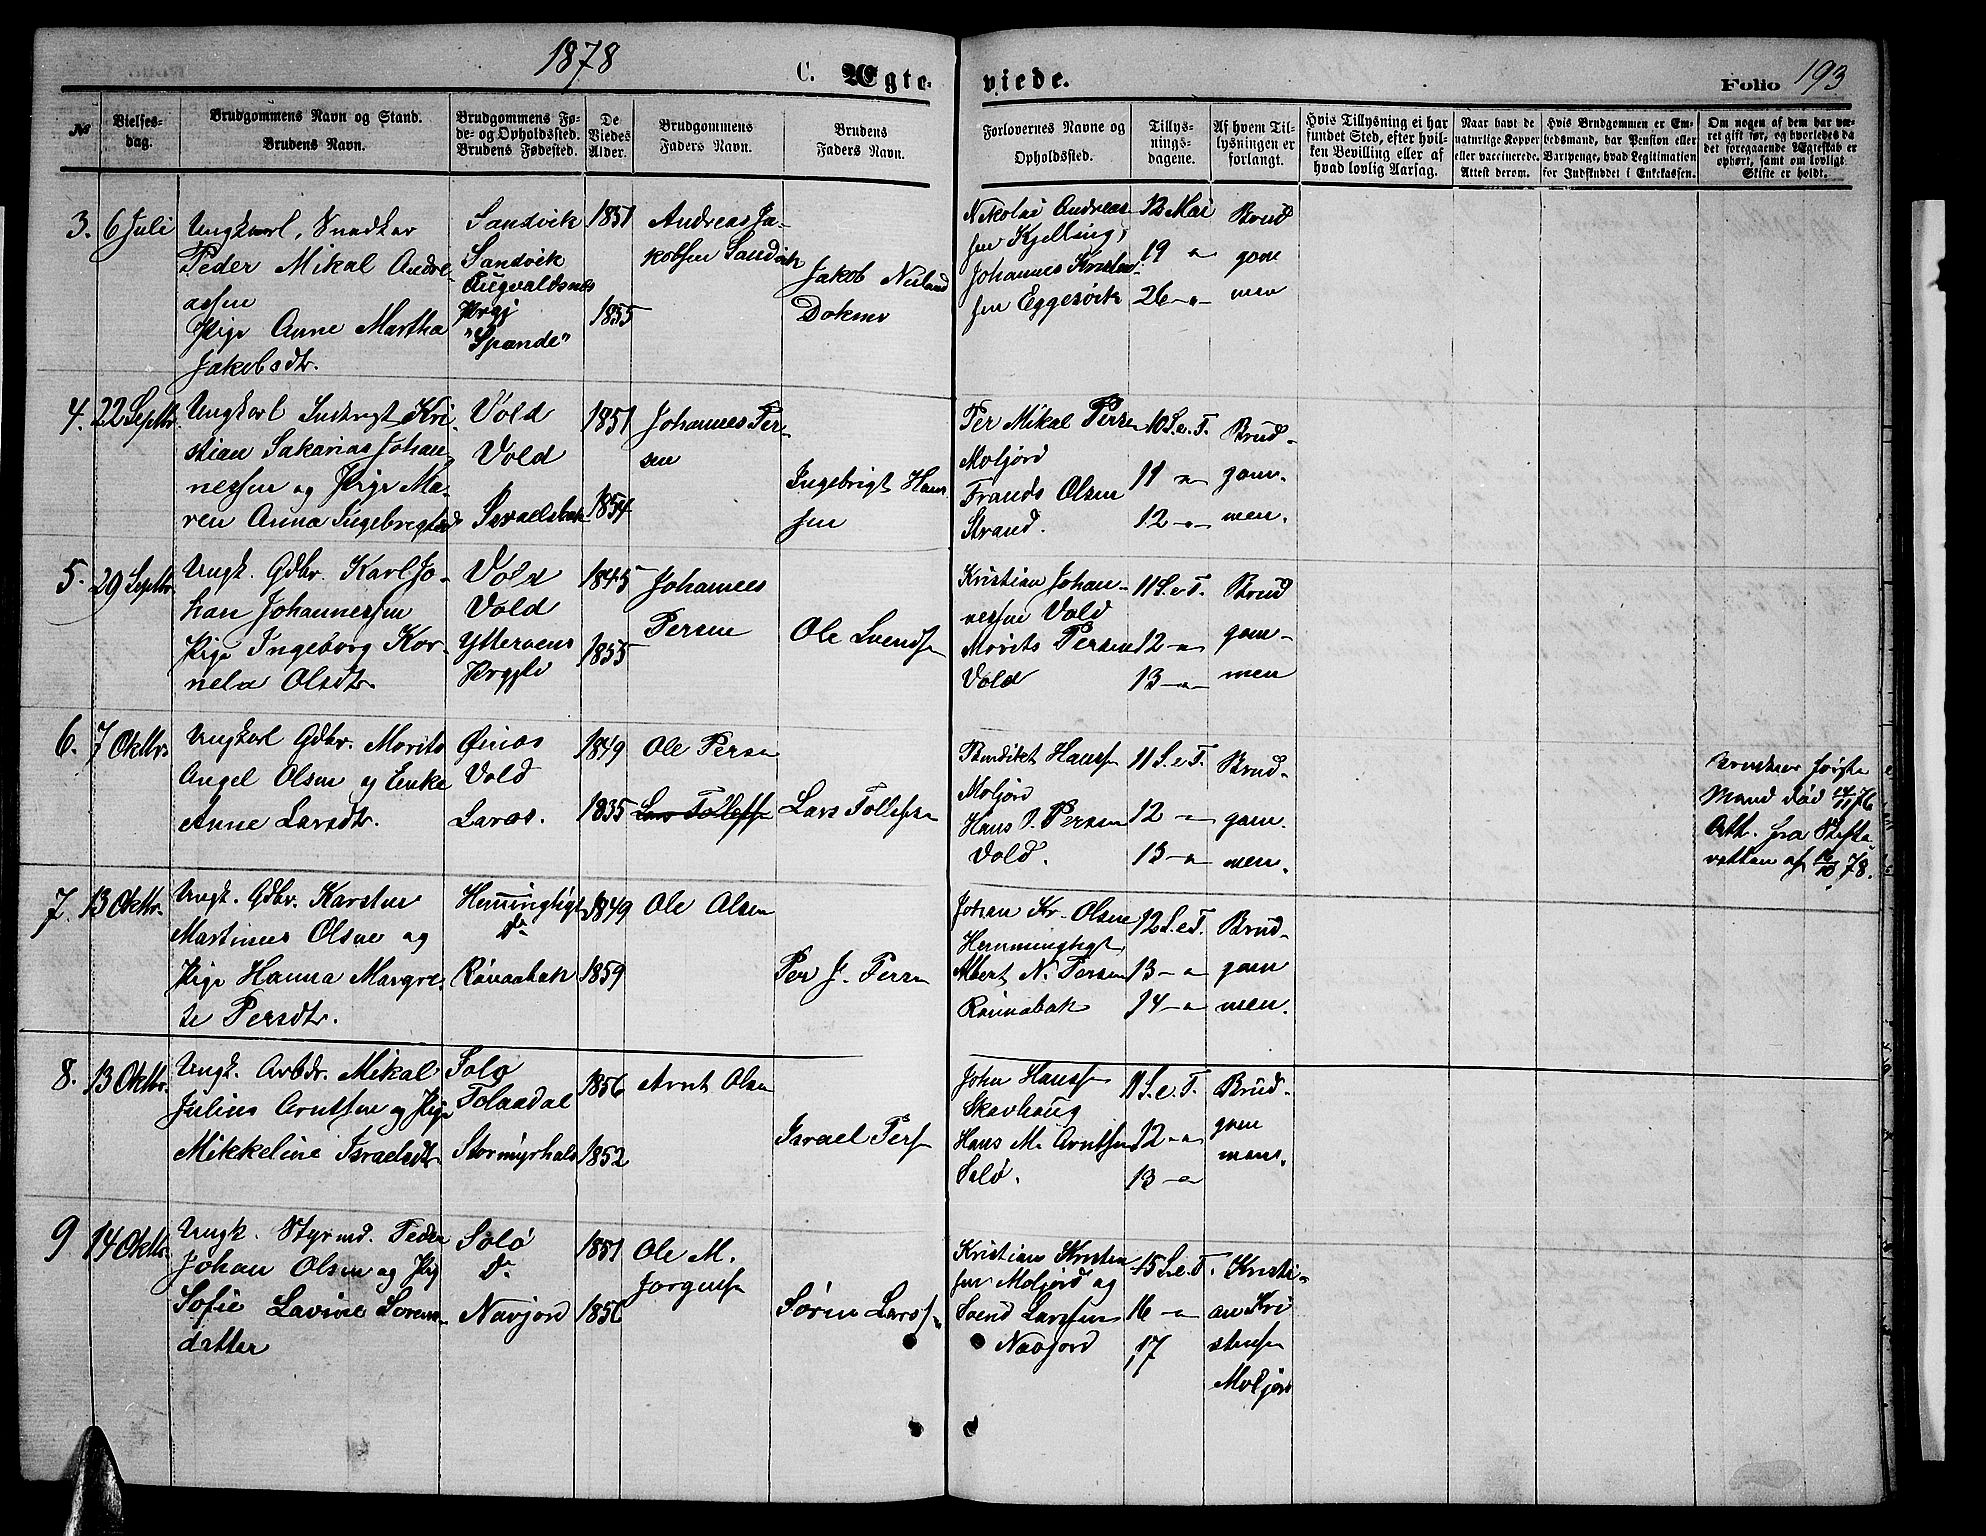 1878
C. Ægte-
viede.
Folio 193
No
Vielses-
dag.
Brudgommens Navn og Stand.
Brudens Navn.
Brudgommens Fø-
de- og Opholdssted.
Brudens Fødested.
De
Viedes
Alder.
Brudgommens
Faders Navn.
Brudens
Faders Navn.
Forlovernes Navne og
Opholdssted.
Tillys-
nings-
dagene.
Af hvem Til-
lysningen er
forlangt.
Hvis Tillysning ei har
fundet Sted, efter hvil-
ken Bevilling eller af
hvad lovlig Aarsag.
Naar havt de
naturlige Kopper
eller vaccinerede.
Attest derom.
Hvis Brudgommen er Em-
bedsmand, har Pension eller
Vartpenge, hvad Legitimation
for Indskuddet i Enkekassen.
Om nogen af dem har væ-
ret gift før, og hvorledes da
det foregaaende Ægteskab er
ophørt, samt om lovligt
Skifte er holdt.
3.
6 Juli
Ungkarl, Snedker
Peder Mikal Andre-
assen
Pige Anne Martha
Jakobsdtr.
Sandvik
Sandvik
Augvaldsnes
Prgj
"Spande"
1851
1855
Andreas Ja-
kobsen Sandvik
Jakob
Nikolai Andreas-
sen Kjelling,
Johannes
sen Eggesvik
12 Mai
19 - " -
26 - " -
Brud
gom
men
4.
22 Septbr.
Ungkarl Kri-
stian Sakarias Johan-
nessen og Pige Ma-
ren Anna Ingebrigtsd
Vold
Vold
Israelsbak
1851
1854
Johannes Per-
sen
Ingebrigt Han
sen
Per Mikal Persen
Moljord
Frands Olsen
Strand.
10 S. e. T.
11 - " -
12 - " -
Brud-
gom-
men.
5.
29 Septbr.
Ungk. Gdbr. Karl Jo-
han Johannessen
Pige Ingeborg Kor-
nela Olsdtr.
Vold
Vold
Ytterøens
Prgjld
1845
1855
Johannes
Persen
Ole Svends
Kristian Johan-
nessen Vold
Morits Persen
Vold
11 S. e. T.
12 - " -
13 - " -
Brud
gom-
men
6.
7 Oktbr.
Ungkarl Gdbr. Morits
Angel Olsen og Enke
Anne Larsdtr.
Øinæs
Vold
Laræs.
1849
1835
Ole Persen
Lars Tollefsen
Lars Tollefsen
Bendikt Hanssen
Moljord
Hans P. Persen
Vold.
11 S. e. T.
12 - " -
13 - " -
Brud-
gom-
men.
Brudens første
Mand død 14/11 76
Att. fra Skifte
retten af 16/10 78.
7.
13 Oktbr.
Ungk. Gdbr. Karsten
Martinus Olsen og
Pige Hanna Margre-
te Persdtr.
Hemingligt
do
Rønaabak
1849
1859
Ole Olsen
Per J. Persen
Johan Kr. Olsen
Hemmingligt
Albert N. Persen
Rønnabak
12 S. e. T.
13 - " -
14 - " -
Brud-
gom
men.
8.
13 Oktbr.
Ungk. Arbdr. Mikal
Julius Arntsen og Pige
Mikkeline Israelsdtr.
Solø
Tolaadal
Stormyrhals
1856
1852
Arnt Olsen
Israel Pers
John Hanssen
Skavhaug
Hans M. Arntsen
Solø.
11 S. e. T.
12 - " -
13 - "
Brud-
gom
men.
9
14 Oktbr.
Ungk. Styrmd. Peder
Johan Olsen og Pig
Sofie Lavine Sørens-
datter
Solø
do
Navjord
1851
1856
Ole M.
Jørgens
Søren Larss
Kristian Kristen
sen Moljord og
Svend Larssen
Navjord
15 S. e. T.
16 - "
17
Kristi-
an Kri
stensen
Moljord